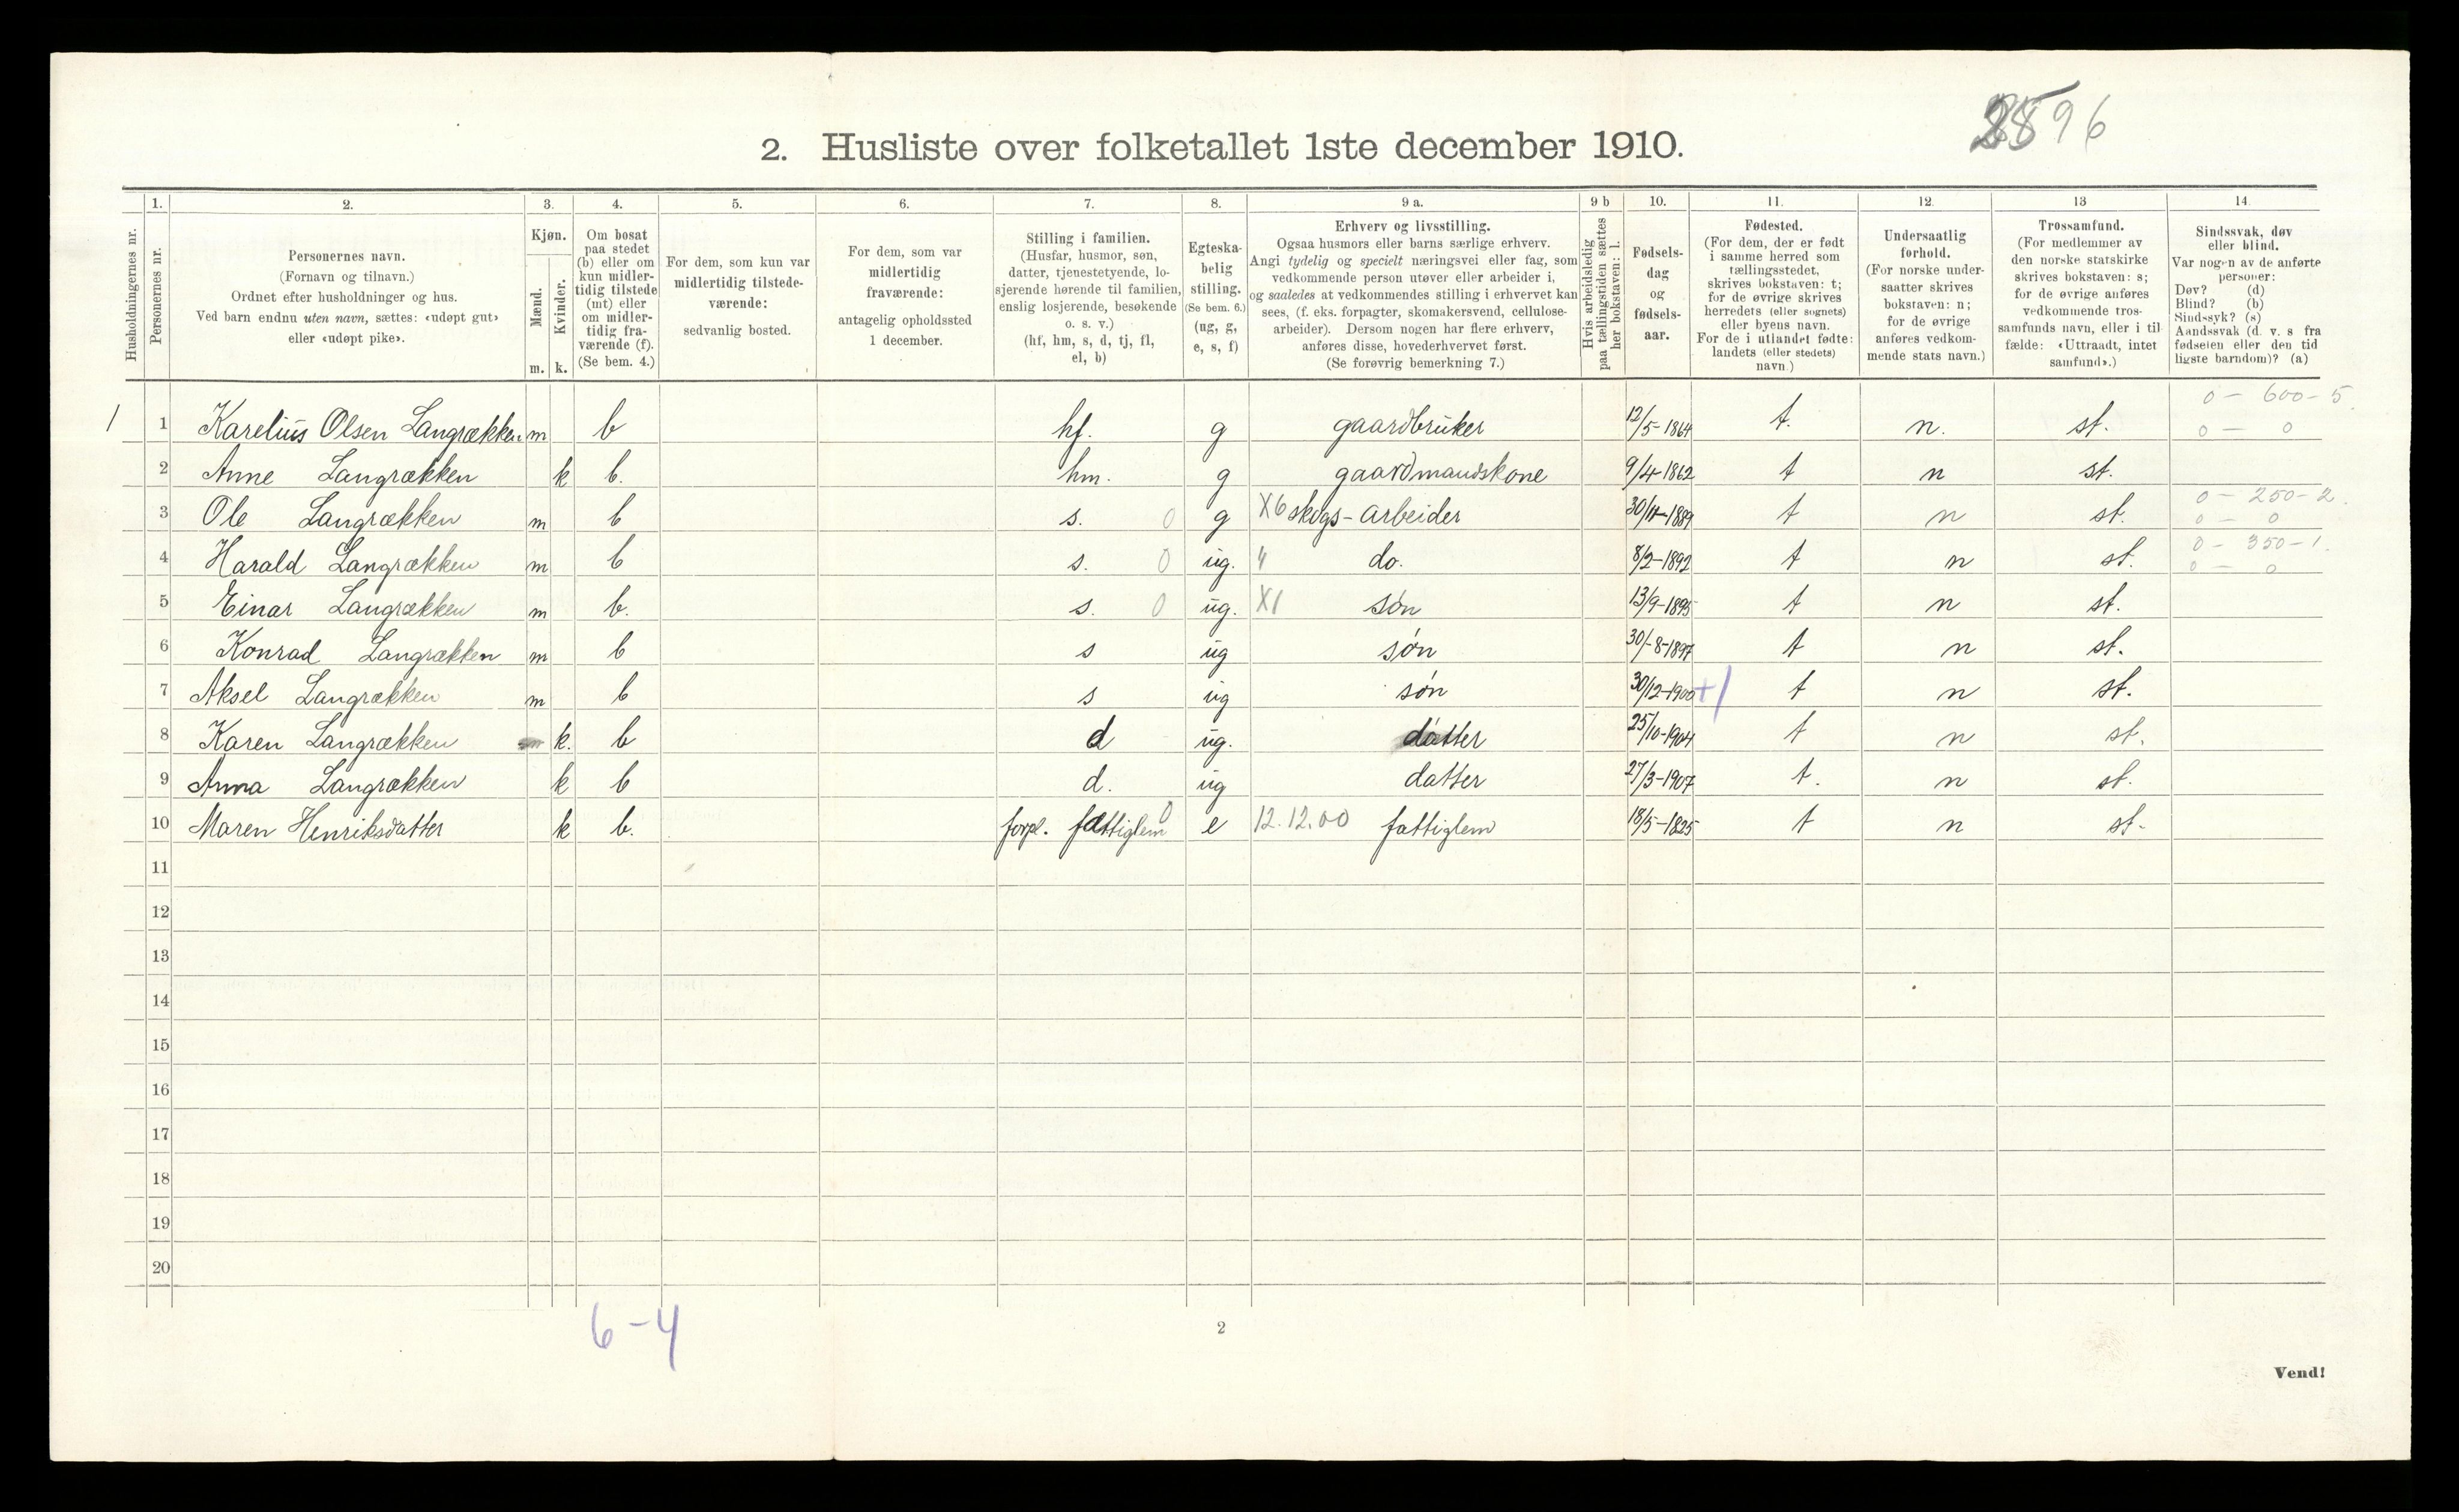 96
2. Husliste over folketallet 1ste december 1910.
Husholdningernes nr.
1. Personernes nr.
2. Personernes navn.
(Fornavn og tilnavn.)
Ordnet efter husholdninger og hus.
Ved barn endnu uten navn, sættes: «udøpt gut»
eller «udøpt pike».
3. Kjøn.
Mænd. Kvinder.
m. k.
4. Om bosat
paa stedet
(b) eller om
kun midler-
tidig tilstede
(mt) eller
om midler-
tidig fra-
værende (f).
(Se bem. 4.)
5. For dem, som kun var
midlertidig tilstede-
værende:
sedvanlig bosted.
6. For dem, som var
midlertidig
fraværende:
antagelig opholdssted
1 december.
7. Stilling i familien.
(Husfar, husmor, søn,
datter, tjenestetyende, lo-
sjerende hørende til familien,
enslig losjerende, besøkende
o. s. v.)
(hf, hm, s, d, tj, fl,
el, b)
8. Egteska-
belig
stilling.
(Se bem. 6.)
(ug, g,
e, s, f)
9 a. Erhverv og livsstilling.
Ogsaa husmors eller barns særlige erhverv.
Angi tydelig og specielt næringsvei eller fag, som
vedkommende person utøver eller arbeider i,
og saaledes at vedkommendes stilling i erhvervet kan
sees, (f. eks. forpagter, skomakersvend, cellulose-
arbeider). Dersom nogen har flere erhverv,
anføres disse, hovederhvervet først.
(Se forøvrig bemerkning 7.)
9 b Hvis arbeidsledig
paa tællingstiden sættes
her bokstaven: l.
10. Fødsels-
dag
og
fødsels-
aar.
11. Fødested.
(For dem, der er født
i samme herred som
tællingsstedet,
skrives bokstaven: t;
for de øvrige skrives
herredets (eller sognets)
eller byens navn.
For de i utlandet fødte:
landets (eller stedets)
navn.)
12. Undersaatlig
forhold.
(For norske under-
saatter skrives
bokstaven: n;
for de øvrige
anføres vedkom-
mende stats navn.)
13 Trossamfund.
(For medlemmer av
den norske statskirke
skrives bokstaven: s;
for de øvrige anføres
vedkommende tros-
samfunds navn, eller i til-
fælde: «Uttraadt, intet
samfund».)
14. Sindssvak, døv
eller blind.
Var nogen av de anførte
personer:
Døv? (d)
Blind? (b)
Sindssyk? (s)
Aandssvak (d. v. s fra
fødselen eller den tid
ligste barndom)? (a)
0 - 600 - 5.
1 1 Karelius Olsen Langrækken m b hf. g gaardbruker 12/5-1864 t. n. st. 0 - 0
2 Anne Langrækken k b. hm. g gaardmandskone 9/4-1862 t n st.
0 - 250 - 2.
3 Ole Langrækken m b s. 0 g X6 skogs-arbeider 30/11-1889 t n st. 0 - 0
0 - 350 - 1.
4 Harald Langrækken m b s. 0 ug. " do. 8/2-1892 t n st. 0 - 0
5 Einar Langrækken m b. s. 0 ug. X1 søn 13/9-1895 t n st.
6 Konrad Langrækken m b s ug søn 30/-8-1897 t n st.
7 Aksel Langrækken m b s ug søn 30/12-1900 +1 t n st.
8 Karen Langrækken k. b d ug. datter 25/10-1904 t n st.
9 Anna Langrækken k b d. ug datter 27/3-1907 t. n st.
10 Maren Henriksdatter k b. forpl. fattiglem 0 e 12.12.00 fattiglem 18/5-1825 t n st-
11
12
13
14
15
16
17
18
19
20
6-4
2
Vend!